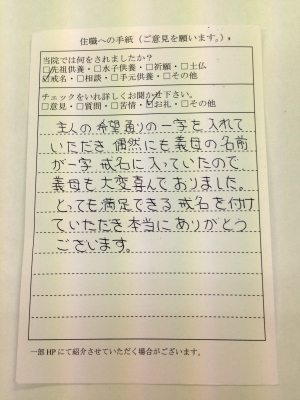 住職への手紙（ご意見を願います。）
当院では何をされましたか？
☑先祖供養・□水子供養・□祈願・□土仏
☑戒名・□相談・□手元供養・□その他
チェックをいれ詳しくお聞かせ下さい。
□意見・□質問・□苦情・☑お礼・□その他
主人の希望通りの一字を入れて
いただき 偶然にも義母の名前
が一字 戒名に入っていたので、
義母も大変喜んておりました。
とっても満足できる戒名を付け
ていただき本当にありがとう
ございます。
一部HPにて紹介させていただく場合がございます。